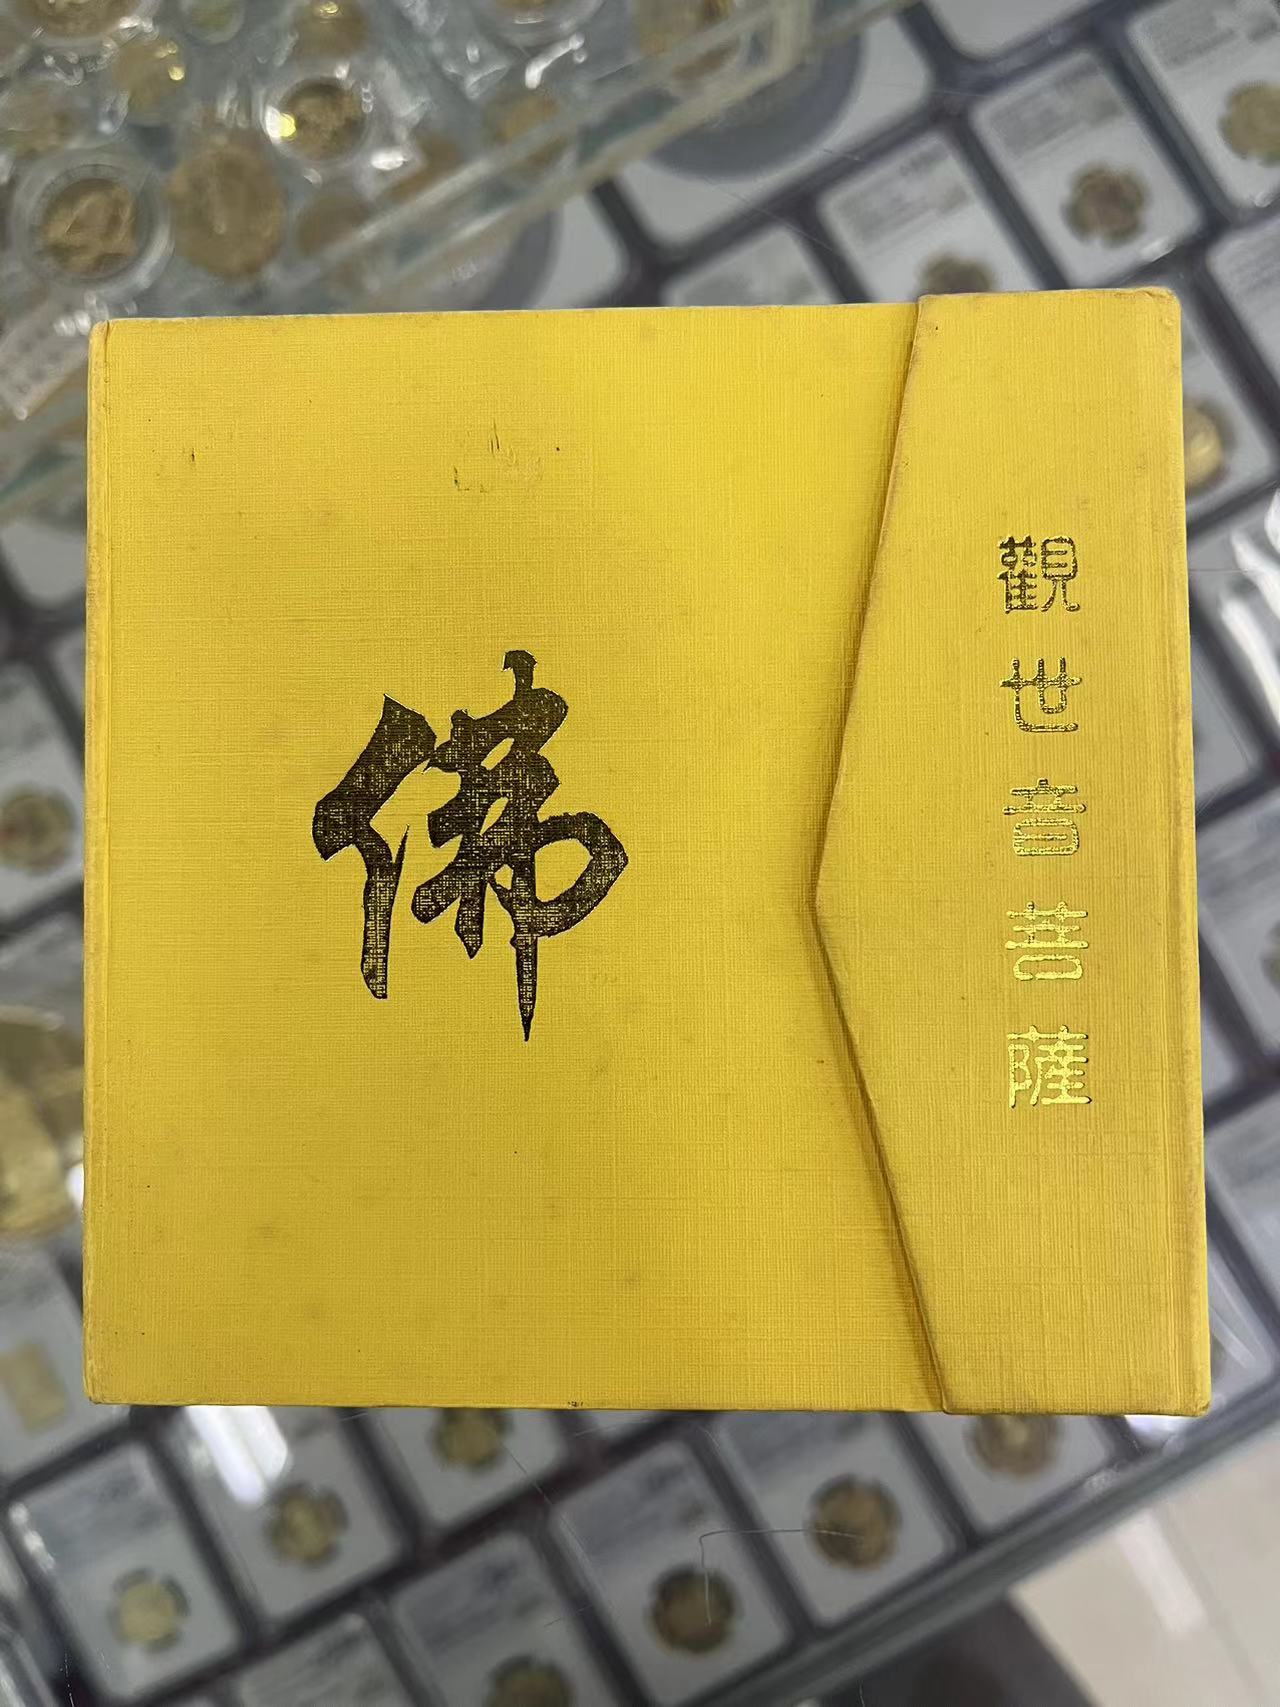 佛
觀世音菩薩